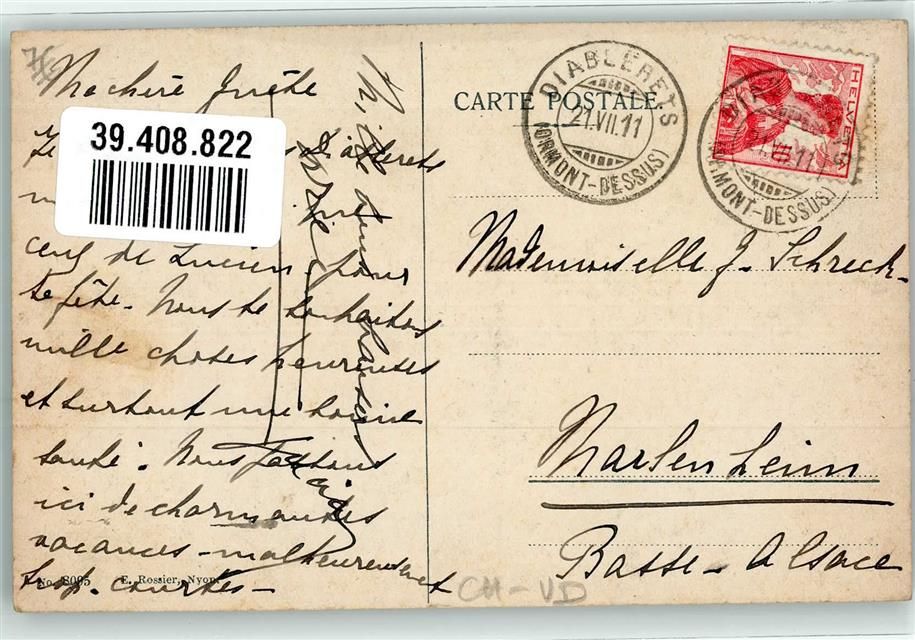 39.408.822
Ma chère
Je
ceux de Lucien pour
ta fête - Nous te souhaitons
mille choses heureuses
et surtout une bonne
santé. Nous faisons
ici de charmantes
vacances - malheureusement
trop courtes -
No. 8095 E. Rossier, Nyon.
CARTE POSTALE
DIABLERETS
21.VII.11
(ORMONT-DESSUS)
HELVETIA
10
(ORMONT-DESSUS)
Mademoiselle J. Schreck
Marlenheim
Basse-Alsace
CH-VD